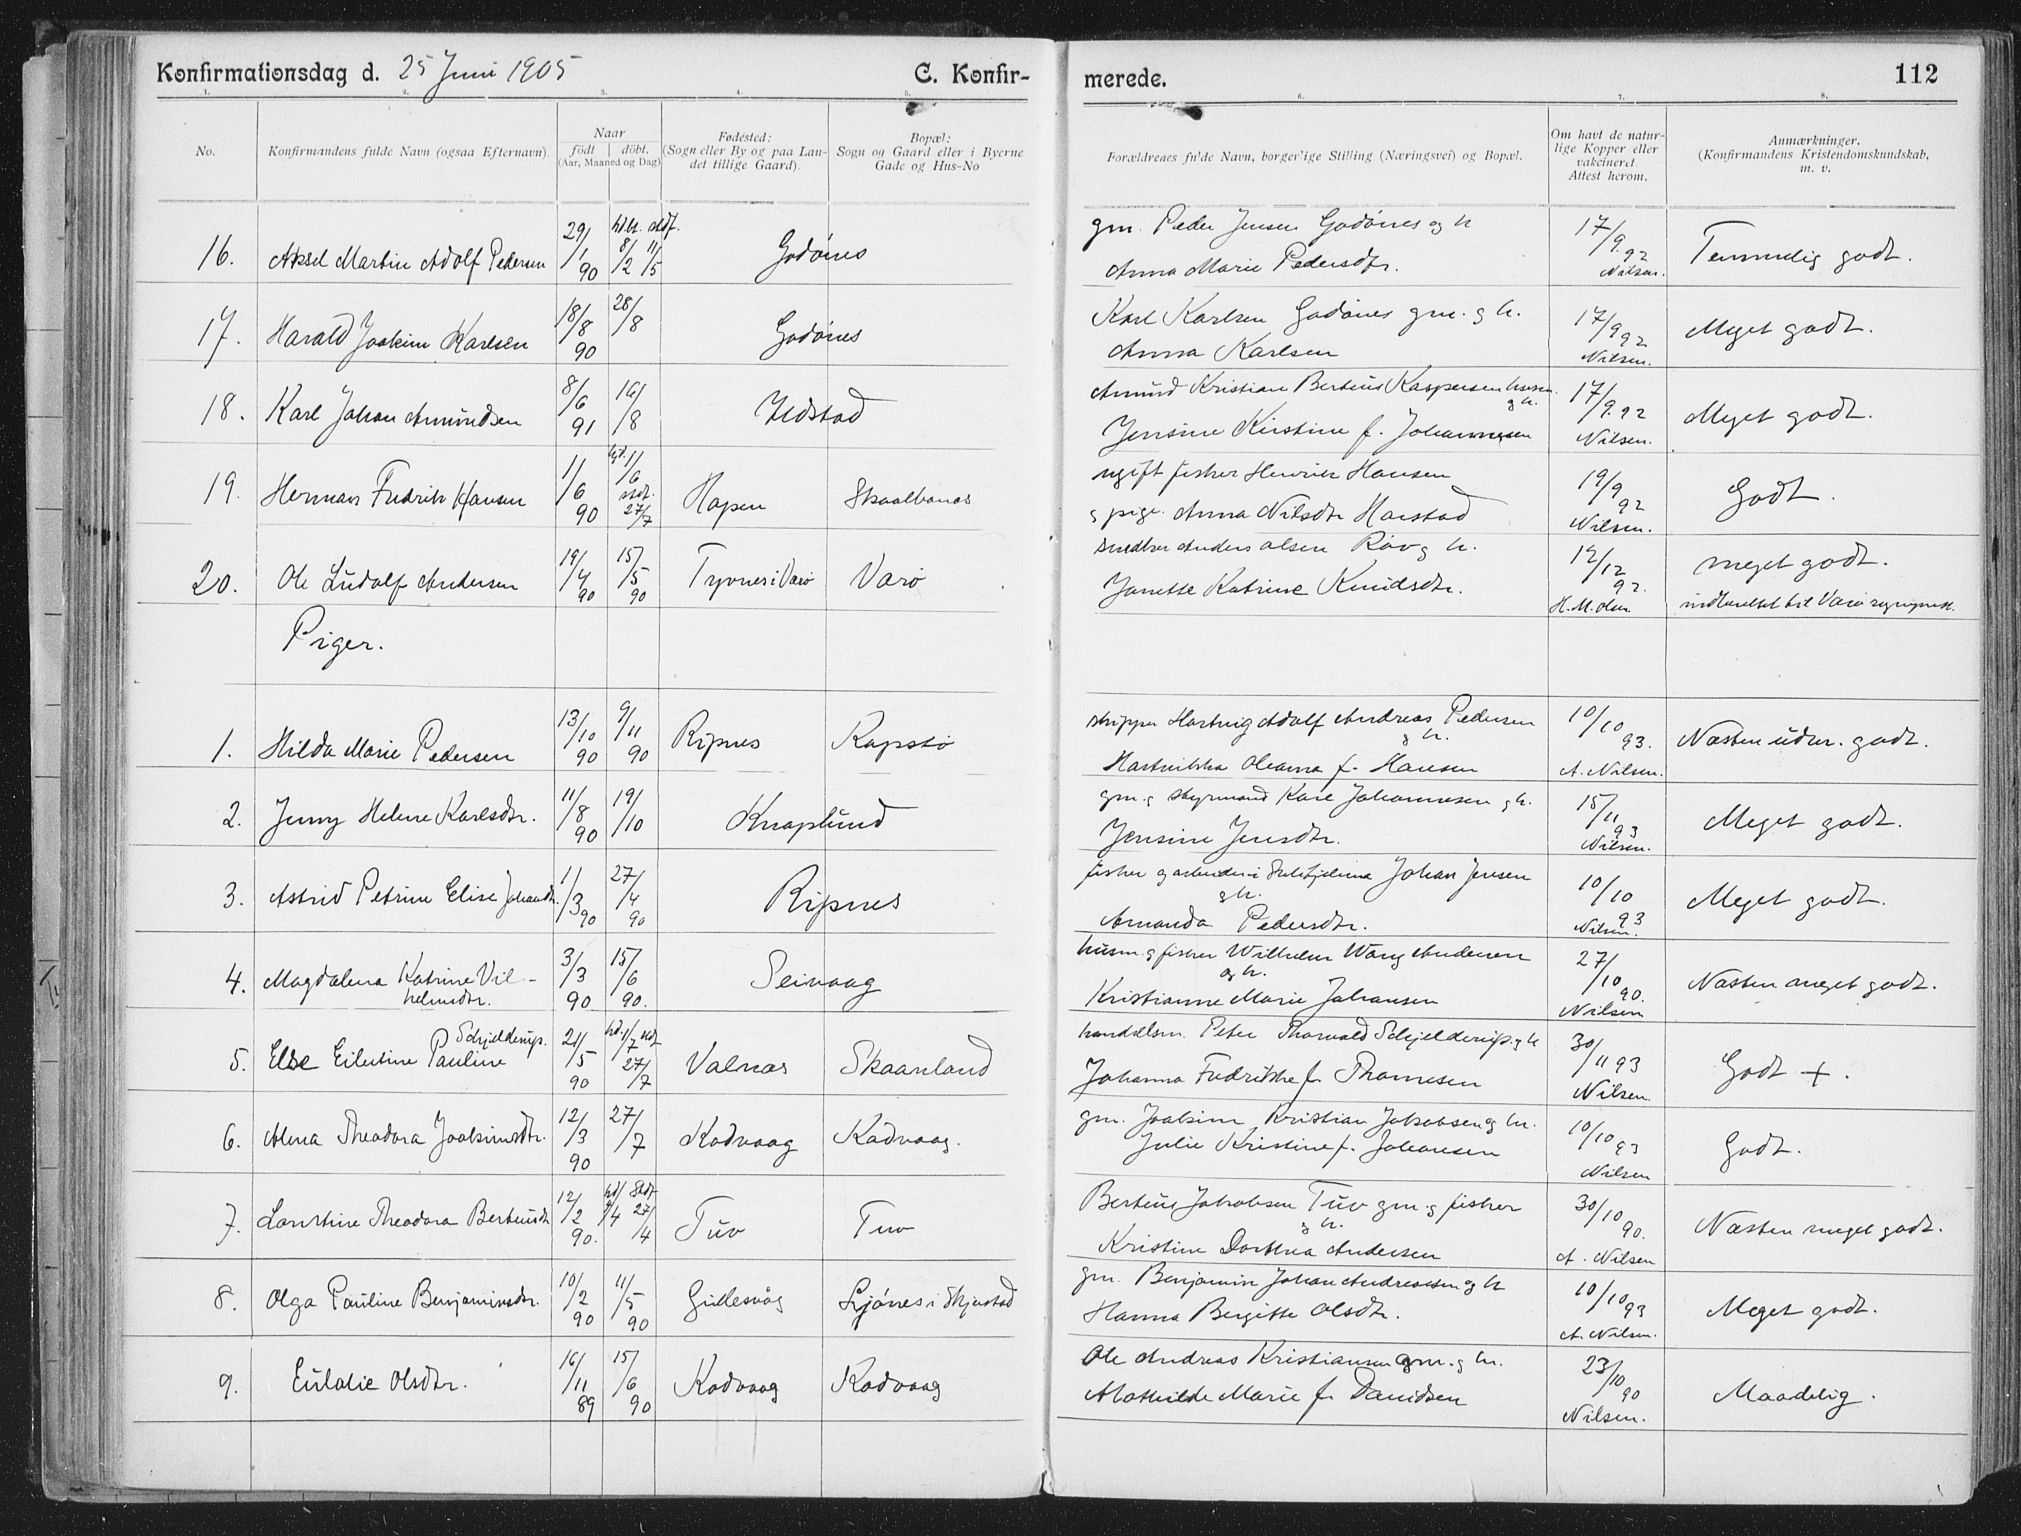 Konfirmationsdag d. 25 Juni 1905
C. Konfir-
merede.
112
1. 2. 3. 4. 5. 6. 7. 8.
No.
Konfirmandens fulde Navn (ogsaa Efternavn).
Naar
födt | döbt.
(Aar, Maaned og Dag)
Fødested:
(Sogn eller By og paa Lan-
det tillige Gaard).
Bopæl:
Sogn og Gaard eller i Byerne
Gade og Hus-No
Forældrenes fulde Navn, borgerlige Stilling (Næringsvei) og Bopæl.
Om havt de natur-
lige Kopper eller
vakcineret.
Attest herom.
Anmærkninger.
(Konfirmandens Kristendomskundskab,
m. v.
16. Aksel Martin Adolf Pedersen 29/1 90 8/2 11/5 Godönes
gm. Peder Jensen Godönes og h
Anna Marie Pedersdtr.
17/9.92 Nilsen. Temmelig godt.
17. Harald Joakim Karlsen 18/8 90 28/8 Godönes
Karl Karlsen Godönes gm. og h.
Anna Karlsen
17/9 92 Nilsen. Meget godt.
18. Karl Johan Amundsen 8/6 91 16/8 Ildstad
Amund Kristian Berteus Kaspersen husm. og h.
Jensine Kirstine f. Johannesen
17/9.92 Nilsen. Meget godt.
19. Herman Fredrik Hansen 1/6 90 1/6 27/7 Hopen
ugift fisker Henrik Hansen
og pige Anna Nilsdtr Harstad
19/9 92 Nilsen. Godt.
20. Ole Ludolf Andersen 19/4 90 15/5 90 Tyvnes i Værö Værö
Anders Olsen Röv og h.
Janette Katrine Knudsdtr.
12/12 92. H. M. Olsen meget godt.
Piger.
1. Hilda Marie Pedersen 13/10 90 9/11 90 Ripnes Kopstö
skipper Hartvig Adolf Andreas Pedersen og h.
Oleanna f. Hansen
10/10 93. A. Nilsen. Næsten udm. godt.
2. Jenny Helene Karlsdtr. 11/8 90 19/10 Knaplund
gm. og styrmand Karl Johannesen og h.
Jensine Jensdtr.
15/11 93 Nilsen. Meget godt.
3. Astrid Petrine Elise Johansdtr. 1/3 90 27/4 90 Ripnes
fisker og arbeider i Sulitjelma Johan Jensen og h.
Amanda Pedersdtr.
10/10 93 Nilsen. Meget godt.
4. Magdalena Katrine Vil-
helmsdtr. 3/3 90 15/6 90. Seivaag
husm. og fisker Wilhelm Wang Andersen og h.
Kristianne Marie Johansen
27/10 90. Nilsen Næsten meget godt.
5. Else Eilertine Pauline Schjelderup. 21/5 90 1/7 27/7 Valnæs Skaanland
handelsm. Peter Thorvald Schjelderup og h
Johanna Fredrikke f. Thomesen
30/11 93 Nilsen. Godt +.
6. Alma Theodora Joakimsdtr. 12/3 90 27/7 Kodvaag Kodvaag.
gm. Joakim Kristian Jakobsen og h.
Julie Kristine f. Johansen
10/10 93 Nilsen Godt.
7. Laurtine Theodora Berteusdtr 12/2 90. 27/4 Tuv Tuv
Berteus Jakobsen Tuv gm. og fisker og h.
Kristine Dorthea Andersen
30/10 90. A. Nilsen Næsten meget godt.
8. Olga Pauline Benjaminsdtr. 10/2 90 11/5 90 Gillesvåg Ljönes i Skjerstad
gm. Benjamin Johan Andreassen og h
Hanna Bergitte Olsdtr.
10/10 93 A. Nilsen. Meget godt.
9. Eulalie Olsdtr. 16/11 89 15/6 90 Kodvaag Kodvaag
Ole Andreas Kristiansen gm. og h.
Mathilde Marie f. Davidsen
23/10 90 Nilsen. Maadelig.